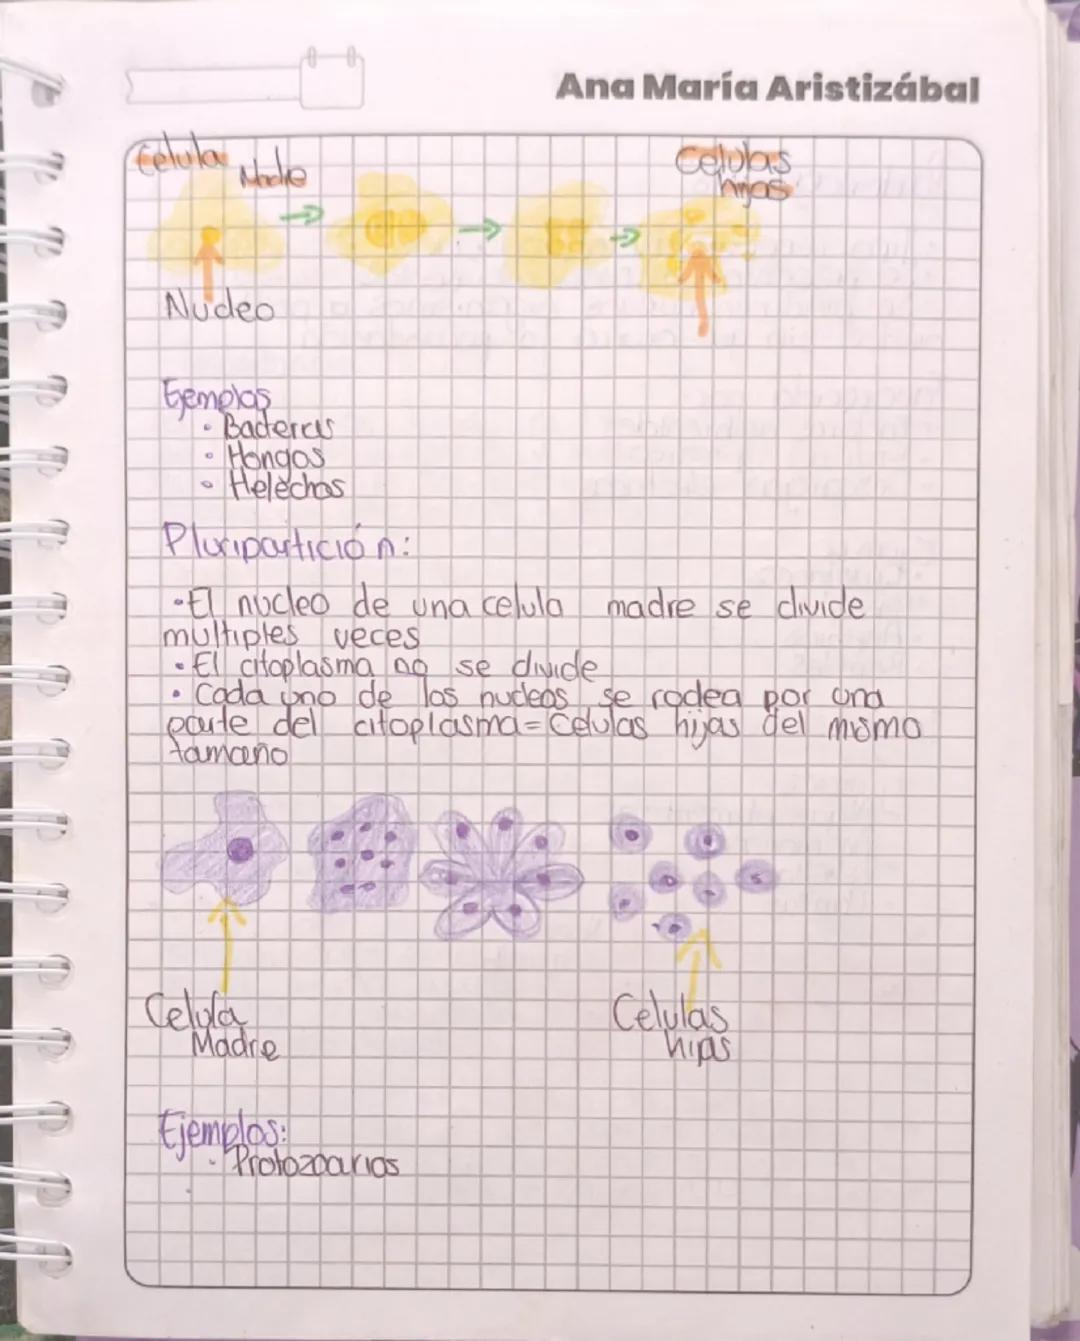 Ana María Aristizábal
Celula Madre
Celulas hijas
Nucleo
Ejemplos
• Bacterias
• Hongos
• Helechos
Pluripartición:
•El nucleo de una celula madre se divide
multiples veces
• El citoplasma no se divide
• Cada uno de los nucleos se rodea por una
parte del citoplasma=Celulas hijas del mismo
tamaño
Celula Madre
Celulas hijas
Ejemplos:
• Protozoarios